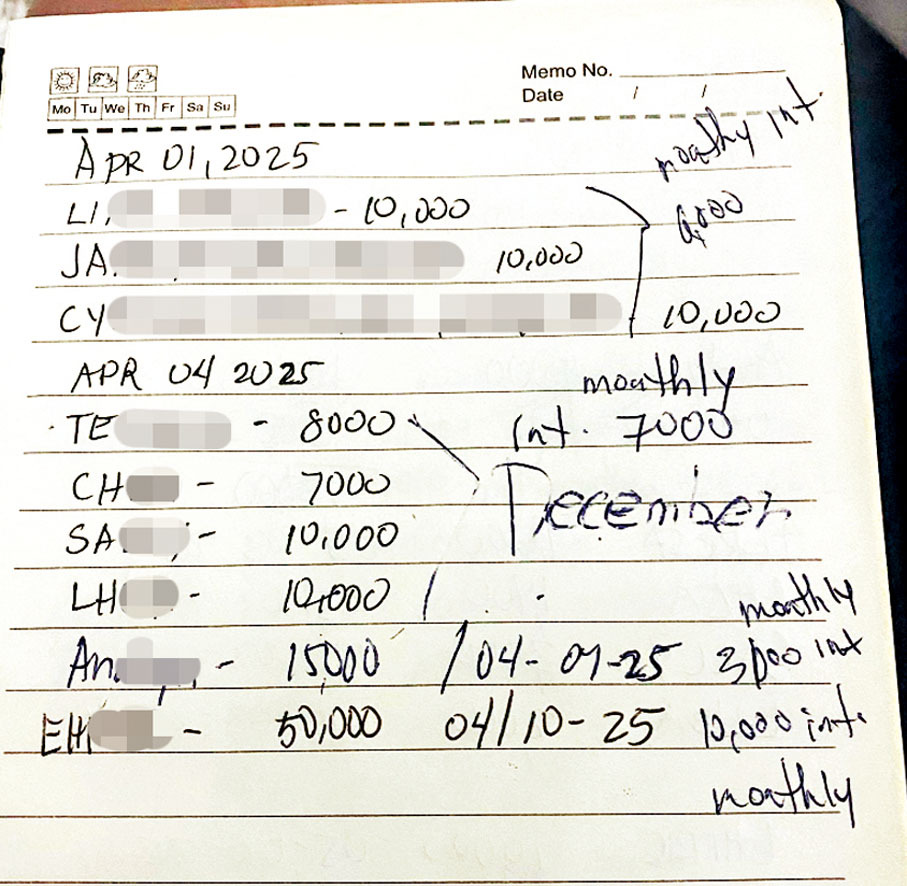 Memo No.
Date / /
Mo Tu We Th Fr Sa Su
APR 01, 2025
monthly int.
LI, - 10,000
6,000
JA. 10,000
CY 10,000
APR 04 2025
monthly
TE - 8000
int. 7000
CH - 7000
December
SA - 10,000
LH - 10,000
monthly
An. - 15,000 / 04-09-25 3,000 int
EH - 50,000 04/10-25 10,000 int.
monthly